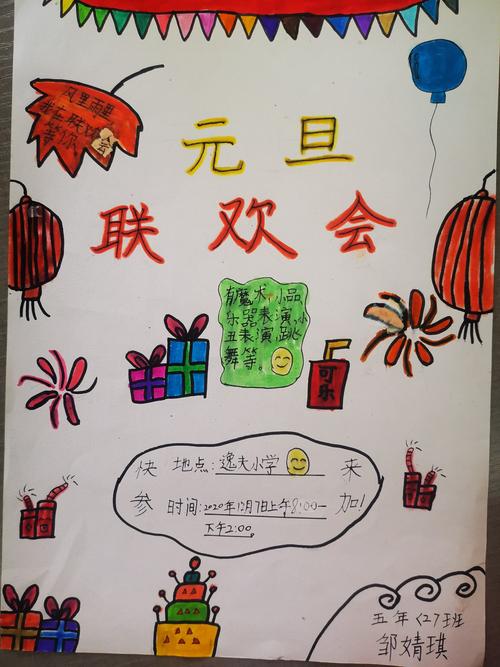 风里雨里
我在联欢会
等你
元旦
联欢会
有魔术,小品,
乐器表演,小
丑表演,跳
舞等。
可乐
快 地点:逸夫小学 来
参 时间:2020年12月7日上午8:00—
下午2:00。 加!
五年〈27〉班
邹婧琪